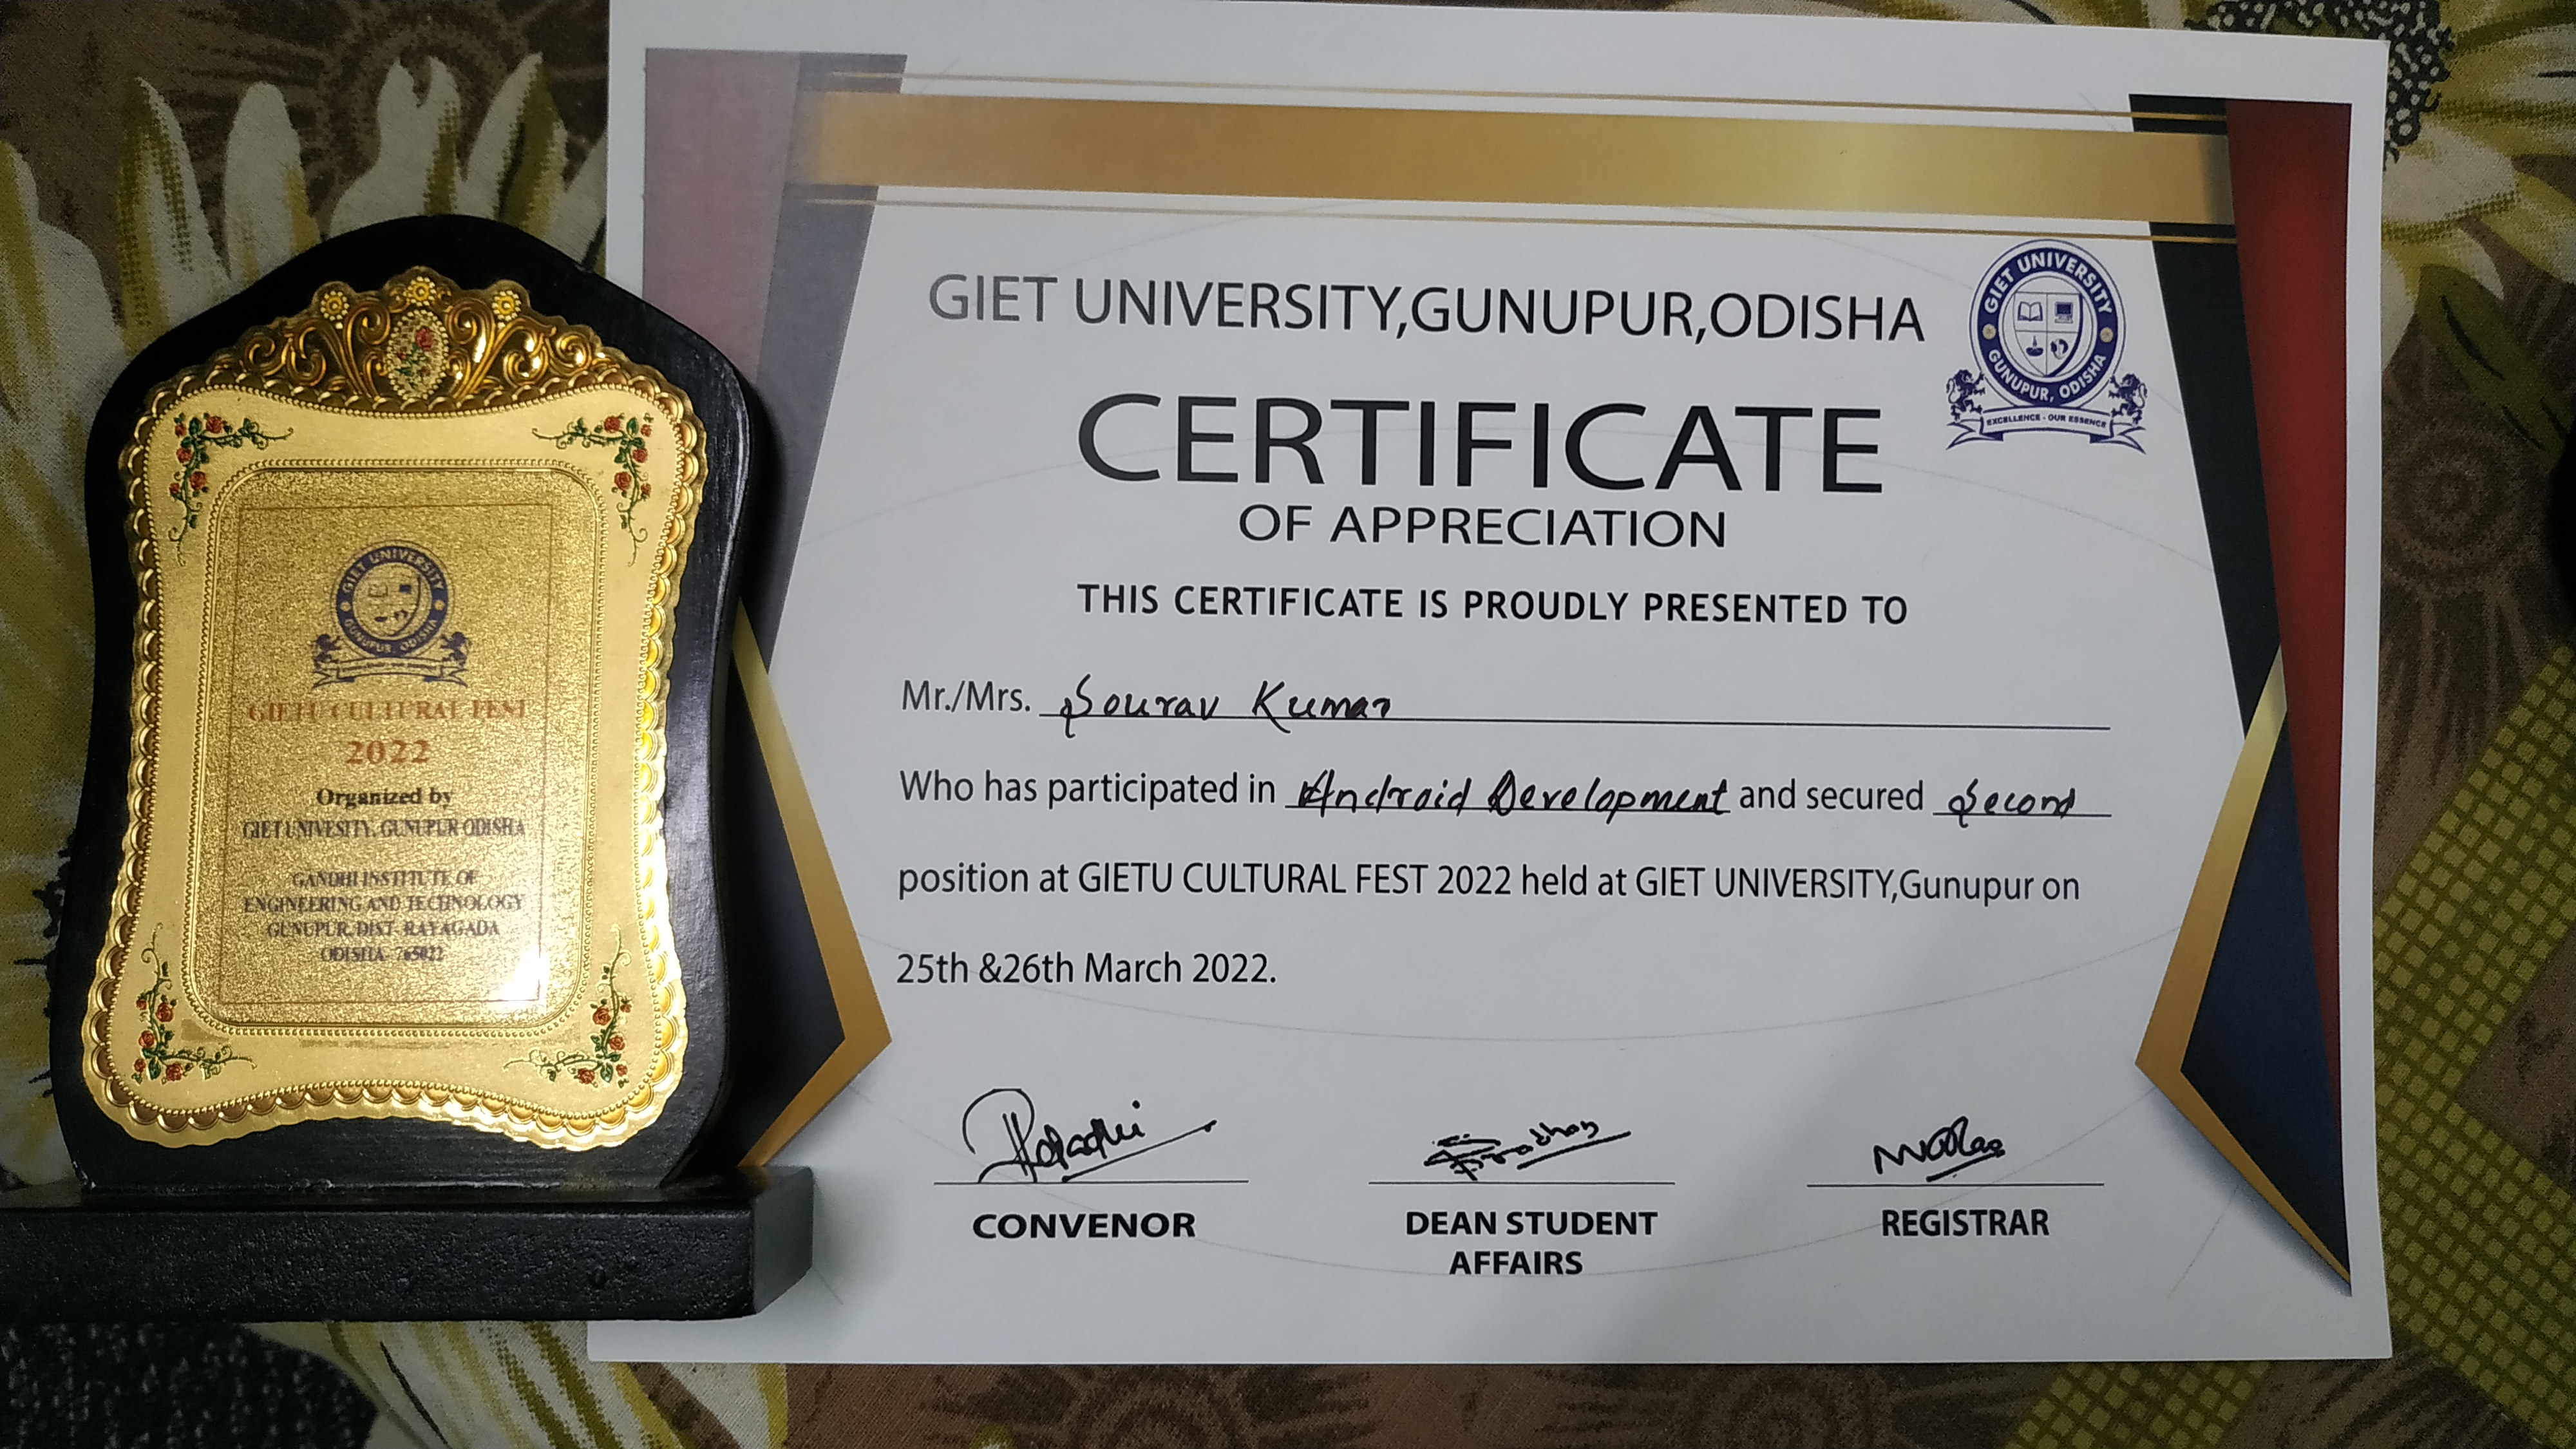 GIET UNIVERSITY
GUNUPUR, ODISHA
GIETU CULTURAL FEST
2022
Organized by
GIET UNIVESITY, GUNUPUR ODISHA
GANDHI INSTITUTE OF
ENGINEERING AND TECHNOLOGY
GUNUPUR, DIST- RAYAGADA
ODISHA- 765022
GIET UNIVERSITY,GUNUPUR,ODISHA
GIET UNIVERSITY
GUNUPUR, ODISHA
EXCELLENCE - OUR ESSENCE
CERTIFICATE
OF APPRECIATION
THIS CERTIFICATE IS PROUDLY PRESENTED TO
Mr./Mrs. Sourav Kumar
Who has participated in Android Development and secured Second
position at GIETU CULTURAL FEST 2022 held at GIET UNIVERSITY,Gunupur on
25th &26th March 2022.
CONVENOR
DEAN STUDENT
AFFAIRS
REGISTRAR